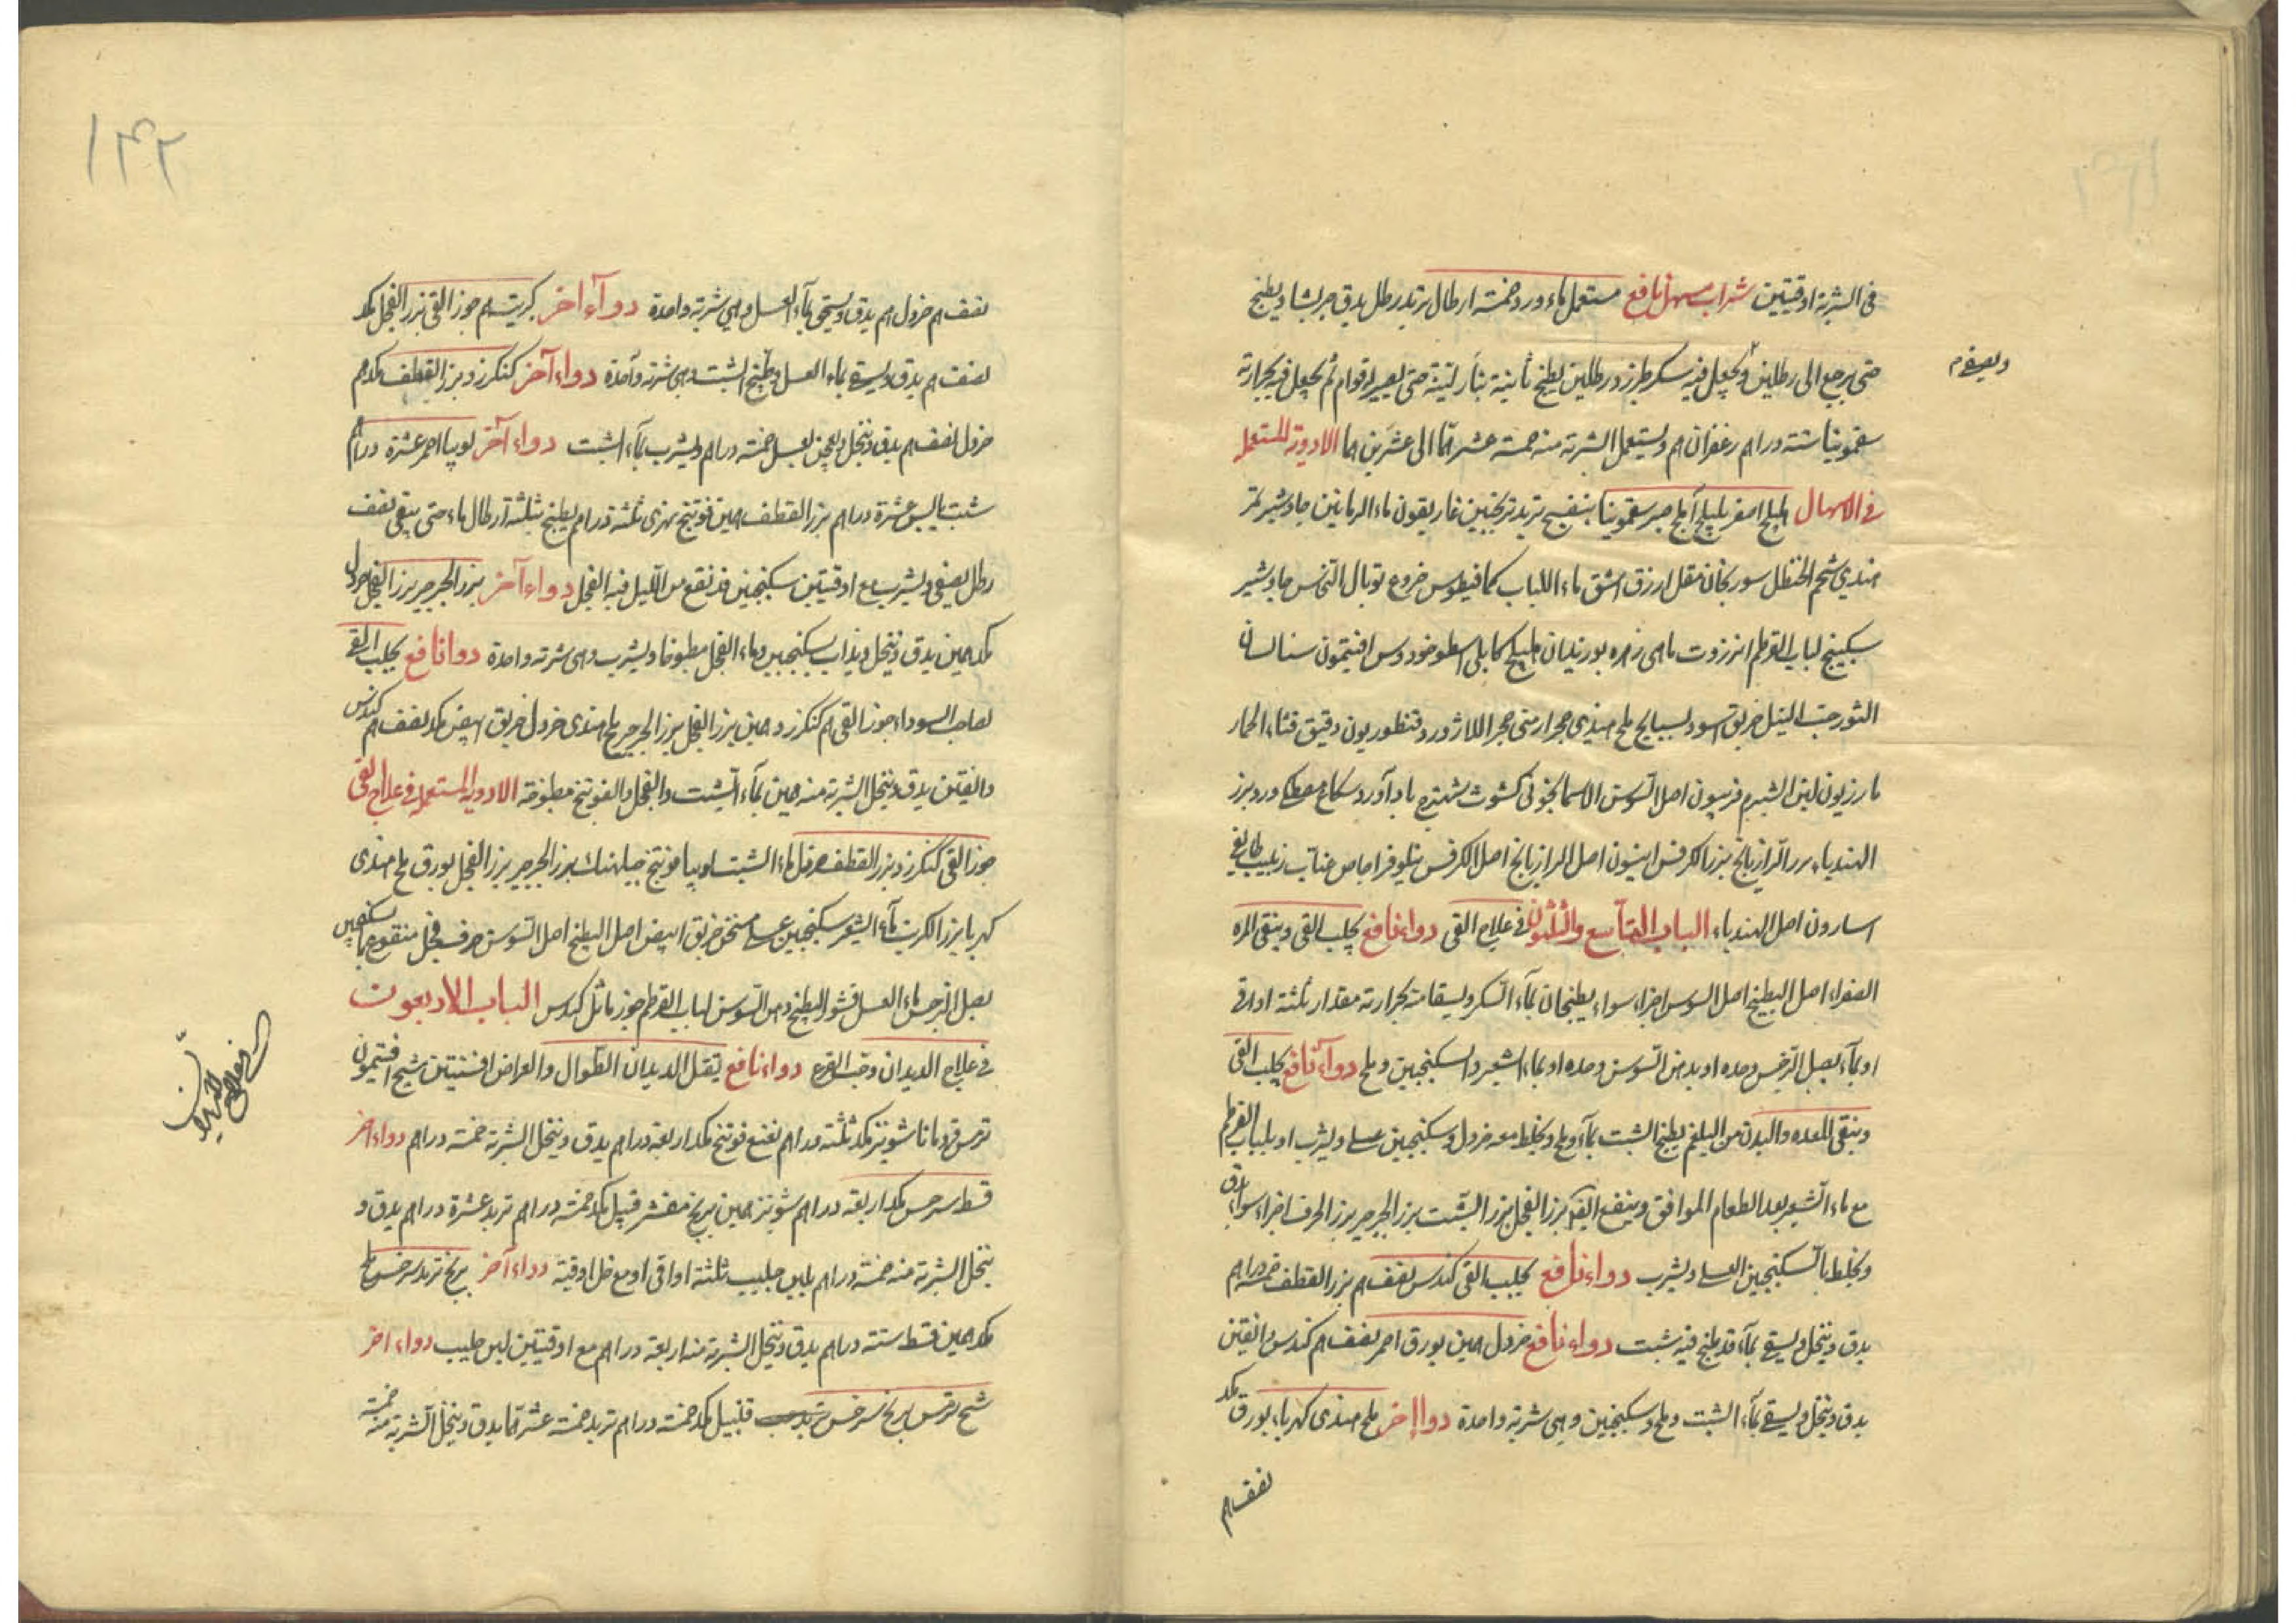 في الشربة اوقيتين شراب مسهل نافع مستعمل ماء ورد خمسة ارطال تربد رطل يدق جريشا ويطبخ
حتى يرجع الى رطلين ويجعل فيه سكر طبرزد رطلين يطبخ ثانية بنار لينة حتى يصير له قوام ثم يجعل فيه بحرارته
ويصفى
سقمونيا ستة دراهم زعفران م ويستعمل الشربة منه خمسة عشر الى عشرين الادوية المستعملة
في الاسهال هليلج اصفر بليلج املج صبر سقمونيا بنفسج تربد ترنجبين غاريقون ماء الرمانين جاوشير تمر
هندي شحم الحنظل سورنجان مقل ازرق اشق ماء اللبلاب كمافيطوس خروع توبال النحاس جاوشير
سكبينج لباب القرطم انزروت ماهي زهره بوزيدان هليلج كابلي اسطوخودوس افتيمون سنا لسان
الثور حب النيل خربق اسود بسبايج ملح هندي حجر ارمني حجر اللازورد قنطوريون دقيق قثاء الحمار
مازريون لبن الشبرم فربيون اصل السوسن الاسمانجوني كشوث شهترج بادآورد شكاع مصطكى ورد بزر
الهندباء بزر الرازيانج بزر الكرفس انيسون اصل الرازيانج اصل الكرفس نيلوفر اجاص عناب زبيب طايفي
اسارون اصل الهندباء الباب التاسع والثلثون في علاج القي دواء نافع يجلب القي وينقي المره
الصفراء اصل البطيخ اصل السوسن اجزاء سواء يطبخان بماء السكر ويسقا منه بحرارته مقدار ثلثة اواقي
او بماء بصل النرجس وحده او بدهن السوسن وحده او بماء الشعير والسكنجبين وملح دواء نافع يجلب القي
وينقي المعده والبدن من البلغم يطبخ الشبت بماء وملح ويخلط معه خردل وسكنجبين عسلي ويشرب او بلباب القرطم
مع ماء الشعير بعد الطعام الموافق وينفع القي بزر الفجل بزر الشبت بزر الجرجير بزر الحرف اجزاء سواء يدق
ويخلط بالسكنجبين العسلي ويشرب دواء نافع يجلب القي كندس نصف م بزر القطف خمسة دراهم
يدق وينخل ويسقي بماء قد طبخ فيه شبت دواء نافع خردل بورق احمر نصف م كندس دانقين
يدق وينخل ويسقي بماء الشبت وملح وسكنجبين وهي شربة واحدة دواء اخر ملح هندي كهرباء بورق مكد
نصف م
١٤٢
نصف م خردل م يدق ويسقى بماء العسل وهي شربة واحدة دوآء اخر كبريت م جوز القي بزر الفجل مكد
نصف م يدق ويسقي بماء العسل وطبخ الشبت وهي شربة واحدة دواء آخر كنكرزد بزر القطف مكد م
خردل نصف م يدق وينخل ويعجن بعسل خمسة دراهم ويشرب بماء الشبت دواء آخر لوبيا احمر عشرة دراهم
شبت يابس عشرة دراهم بزر القطف فوتنج نهري ثلثة دراهم يطبخ بثلثة ارطال ماء حتى يبقى نصف
رطل يصفي ويشرب مع اوقيتين سكنجبين قد نقع من الليل فيه الفجل دواء آخر بزر الجرجير بزر الفجل خردل
مكد يدق وينخل ويذاب بسكنجبين وماء الفجل مطبوخا ويشرب وهي شربة واحدة دوا نافع يجلب القي
لصاحب السوداء جوز القي م كنكرزد بزر الفجل بزر الجرجير ملح هندي خردل خربق ابيض مكد نصف م كندس
دانقين يدق وينخل الشربة منه بماء الشبت والفجل والفوتنج مطبوخة الادوية المستعملة في علاج القي
جوز القي كنكرزد بزر القطف خردل ماء الشبت لوبيا فوتنج جبلهنك بزر الجرجير بزر الفجل بورق ملح هندي
كهربا بزر الكرنب ماء الشعير سكنجبين عسلي خربق ابيض اصل البطيخ اصل السوسن حرف فجل منقوع بالسكنجبين
بصل النرجس ماء العسل قشور البطيخ دهن السوسن لباب القرطم جوز ماثل كندس الباب الاربعون
في علاج الديدان وحب القرع دواء نافع يقتل الديدان الطوال والعراض افسنتين شيح افتيمون
ترمس قردمانا شونيز مكد ثلثة دراهم نعنع فوتنج مكد اربعة دراهم يدق وينخل الشربة خمسة دراهم دواء اخر
قسط سرخس مكد اربعة دراهم شونيز برنج مقشر قنبيل مكد خمسة دراهم تربد عشرة دراهم يدق و
ينخل الشربة منه خمسة دراهم بلبن حليب ثلثة اواقي او مع خل اوقية دواء آخر برنج تربد سرخس ملح
مكد قسط ستة دراهم يدق وينخل الشربة منه اربعة دراهم مع اوقيتين لبن حليب دواء اخر
شيح ترمس برنج سرخس قنبيل مكد خمسة دراهم تربد خمسة عشر يدق وينخل الشربة منه خمسة